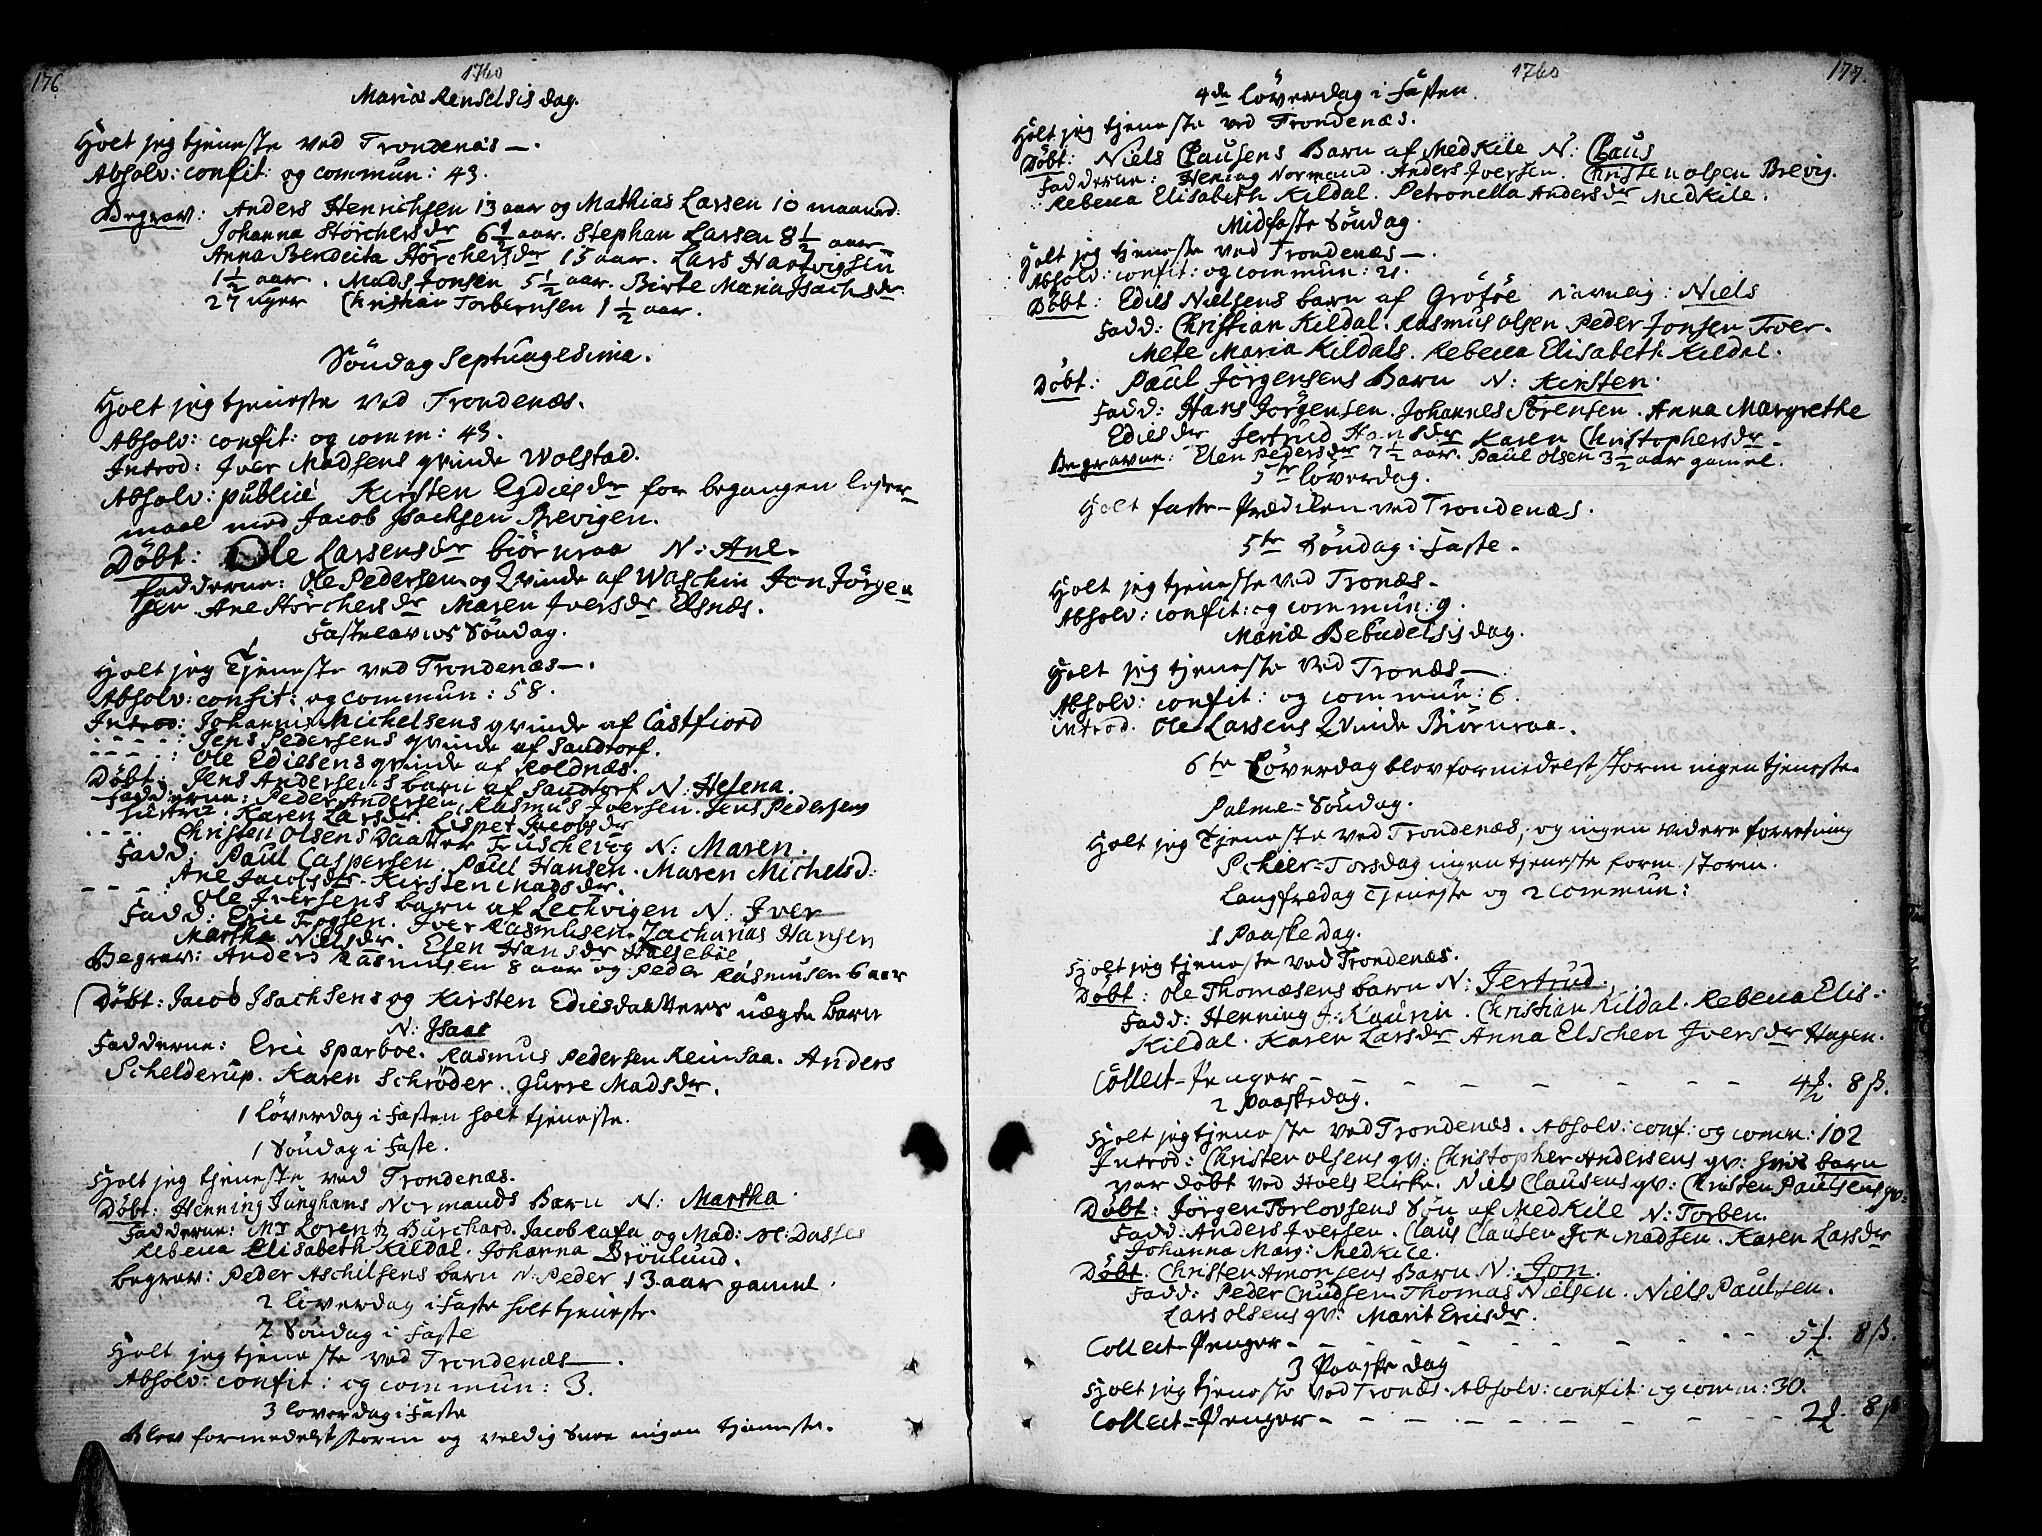 176
1760
Mariæ Renselsis dag.
Holt jeg tjeneste ved Trondenæs —.
Absolv: confit: og commun: 43.
Begrav: Anders Henrichsen 13 aar og Mathias Larsen 10 maaned:
Johanna Störchersdr 6 1/2 aar. Stephan Larsen 8 1/2 aar
Anna Bendicta Störchersdr 15 aar. Lars Hartvigsen
1 1/2 aar. Mads Jonsen 5 1/2 aar. Birte Maria Isachsdr
27 uger Christian Torbernsen 1 1/2 aar.
Söndag Septuagesima.
Holt jeg tjeneste ved Trondenæs.
Absolv: confit: og comm: 43.
Introd: Iver Madsens qvinde Wolstad.
Absolv: publicè Kirsten Egdiesdr for begangen lejer-
maal med Jacob Isachsen Brevigen.
Döbt: Ole Larsensdr Biörnraa N: Ane.
Fadderne: Ole Pedersen og Qvinde af Waschin Jon Jörgen
sen Ane Störchersdr Maren Iversdr Elsnæs.
Fastelavns Söndag.
Holt jeg Tjeneste ved Trondenæs —.
Absolv: confit: og commun: 58.
Introd: Johannis Michelsens qvinde af Castfiord
- - - - : Jens Pedersens qvinde af Sandtorf.
- - - - : Ole Ediesens qvinde af Roldnæs.
Döbt: Jens Andersens barn af Sandtorf N: Helena.
Fadderne: Peder Andersen, Rasmus Iversen. Jens Pedersens
hustrue: Karen Larsdr. Lispet Jacobsdr
- - - - Christen Olsens Daatter N: Maren.
Fadd: Paul Caspersen. Paul Hansen. Maren Michelsd:
Ane Jacobsdr. Kirsten Madsdr.
- - - - : Ole Iversens barn af Lechvigen N: Iver
Fadd: Eric Trogsen. Iver Rasmusen. Zacharias Hansen
Martha Nielsdr. Elen Hansdr Halseböe
Begrav: Anders Rasmusen 8 aar og Peder Rasmusen 6 aar
Döbt: Jacob Isachsens og Kirsten Ediesdaatters uægte barn
N: Isaac
Fadderne: Eric Sparboe. Rasmus Pedersen Reinsaa. Anders
Schelderup. Karen Schröder. Gurre Madsdr.
1 Löverdag i Fasten holt tjeneste.
1 Söndag i Faste.
Holt jeg tjeneste ved Trondenæs.
Döbt: Henning Junghans Normands Barn N: Martha.
Fadderne: Mr Lorentz Burchard. Jacob Rafn og Mad:
Rebecca Elisabeth Kildal. Johanna Brönlund.
Begrav: Peder Aschilsens barn N: Peder 13 aar gamel.
2 Löverdag i Faste holt tjeneste.
2 Söndag i Faste
Holt jeg tjeneste ved Trondenæs —.
Absolv: confit: og commun: 3.
3 löverdag i Faste
Blev formedelst storm og veldig Snee ingen tjeneste.
1760
177.
4de löverdag i Fasten.
Holt jeg tjeneste ved Trondenæs.
Döbt: Niels Clausens Barn af Medkile N: Claus
Fadderne: Hening Normand. Anders Iversen. Christen olsen Brevig.
Rebecca Elisabeth Kildal. Petronella Andersdr Medkile.
Midfaste Söndag.
Holt jeg tjeneste ved Trondenæs —.
Absolv: confit: og commun: 21.
Döbt: Edies Nielsens barn af Grötöe Navnlig: Niels
Fadd: Christian Kildal. Rasmus olsen Peder Jonsen Tver.
Mete Maria Kildals. Rebecca Elisabeth Kildal.
Döbt: Paul Jörgensens Barn N: Kirsten.
Fadd: Hans Jörgensen. Johannes Sörensen. Anna Margrethe
Ediesdr Jertrud Hansdr Karen Christophersdr.
Begravne: Elen Pedersdr 7 1/2 aar. Paul olsen 3 1/2 aar gamel.
5te löverdag.
Holt faste-Prædiken ved Trondenæs.
5te Söndag i Faste.
Holt jeg tjeneste ved Tronæs.
Absolv: confit: og commun: 9.
Mariæ Bebudelsis dag.
Holt jeg tjeneste ved Tronæs —
Absolv: confit: og commun: 6.
introd. Ole Larsens Qvinde Biörnraa.
6te Löverdag blev formedelst storm ingen tjeneste.
Palme-Söndag.
Holt jeg Tjeneste ved Trondenæs, og ingen videre forretning
Schier-Torsdag ingen tjeneste form: storm.
Langfredag Tjeneste og 2 Commun:
1 Paaske Dag.
Holt jeg tjeneste ved Trondenæs.
Döbt: Ole Thomæsens barn N: Jertrud.
Fadd: Henning J: Kaurin. Christian Kildal. Rebecca Elis:
Kildal. Karen Larsdr Anna Elschen Iversdr Hagen.
Collect-Penger - - - - - - - 4 8 ß.
2 Paaskedag.
Holt jeg tjeneste ved Trondenæs. Absolv: conf: og comm: 102
Introd: Christen olsens qv: Christopher Andersens qv: hvis barn
var döbt ved Hoels Kirke. Niels Clausens qv: Christen Paulsens qv:
Döbt: Jörgen Torlovsens Sön af Medkile N: Torben.
Fadd: Anders Iversen. Claus Clausen Jon Madsen. Karen Larsdr
Johanna Marg: Medkile.
Döbt: Christen Amonsens Barn N: Jon.
Fadd: Peder Cnudsen. Thomas Nielsen. Niels Paulsen.
Lars olsens qv: Marit Ericsdr.
Collect-Penger - - - - - - - 5 8 ß.
3 Paaske dag
Holt jeg tjeneste ved Tronæs. Absolv: confit: og comm: 30.
Collect-Penger - - - - - - - 2 8 ß